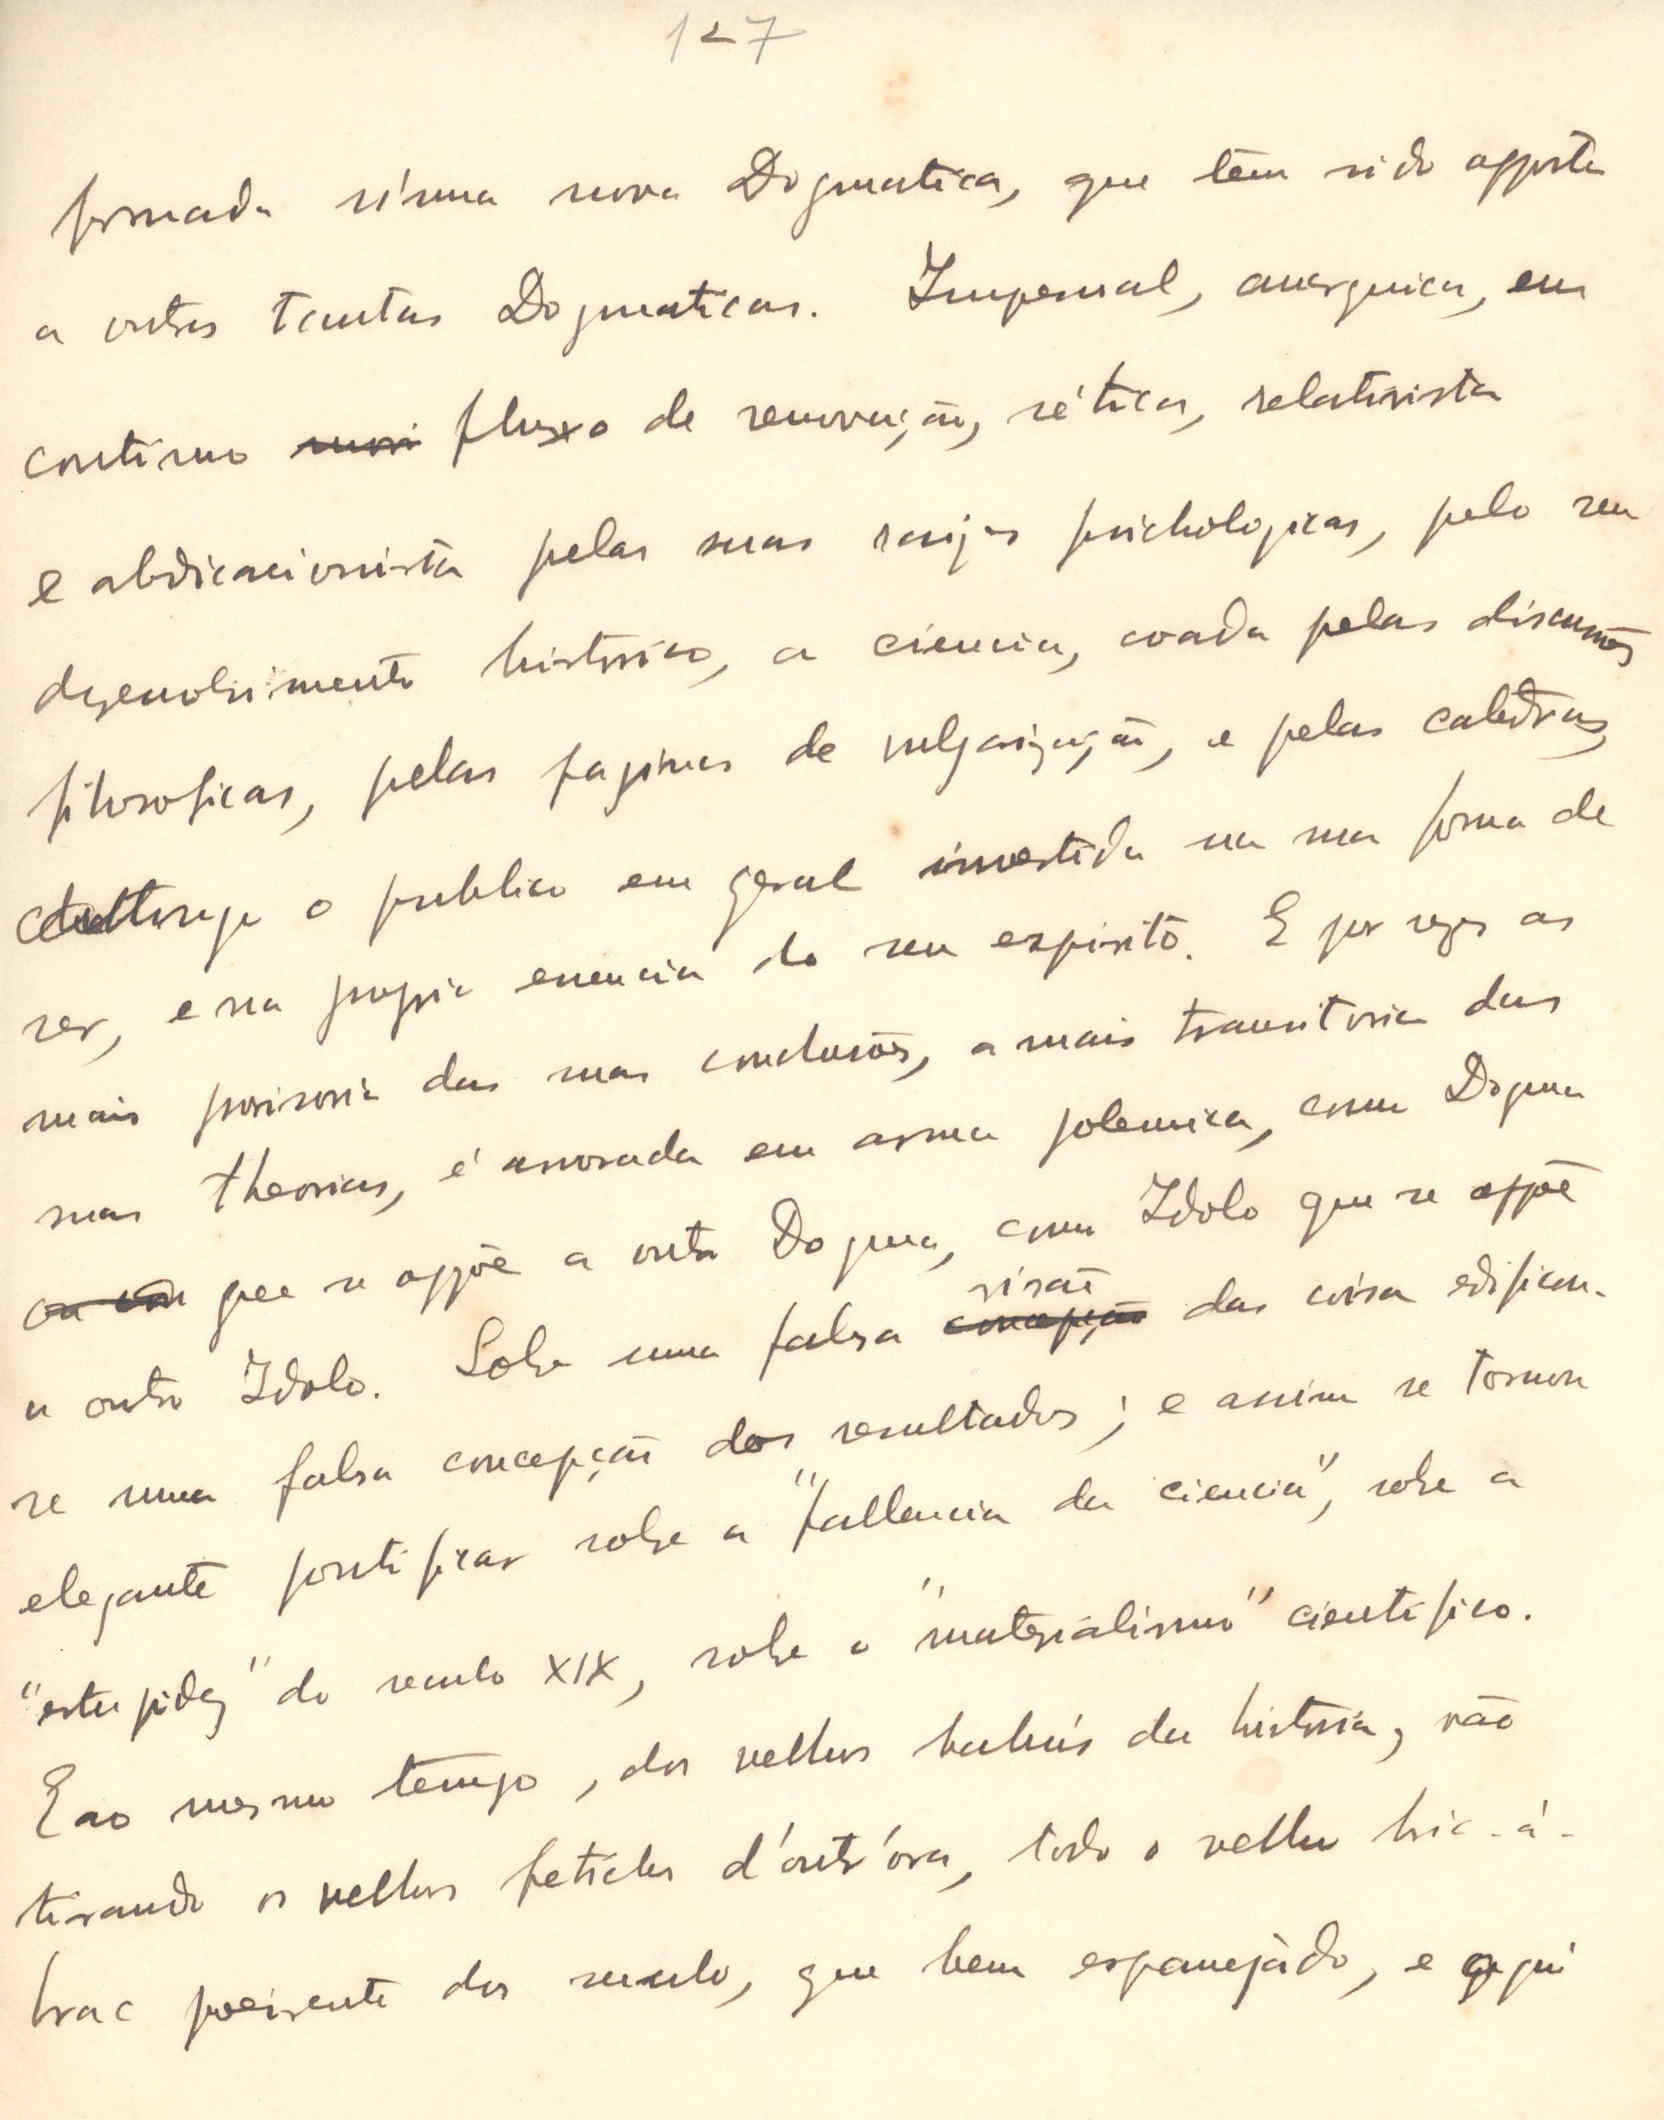 127
formada n'uma nova Dogmatica, que tem sido opposta
a outras tantas Dogmaticas. Impessoal, anarquica, em
continuo fluxo de renovação, sética, relativista
e abdicacionista pelas suas raizes psichologicas, pelo seu
dezenvolvimento historico, a ciencia, coada pelas discussões
filosoficas, pelas paginas de vulgarização, e pelas catedras,
o publico em geral invertida na sua forma de
ser, e na propria essencia do seu espirito. E por vezes as
mais provisoria das suas conclusões, a mais transitoria das
suas theorias, é arvorada em arma polemica, como Dogma
que se oppõe a outro Dogma, como Idolo que se oppõe
a outro Idolo. Sobre uma falsa visão das coisa edificou-
se uma falsa concepção dos resultados; e assim se tornou
elegante pontificar sobre a "fallencia da ciencia", sobre a
"estupidez" do seculo XIX, sobre o "materialismo" cientifico.
E ao mesmo tempo, dos velhos bahús da historia, vão
tirando os velhos fetiches d'outr'ora, todo o velho bric-á-
brac poeirento dos seculo, que bem espanejádo, e aqui